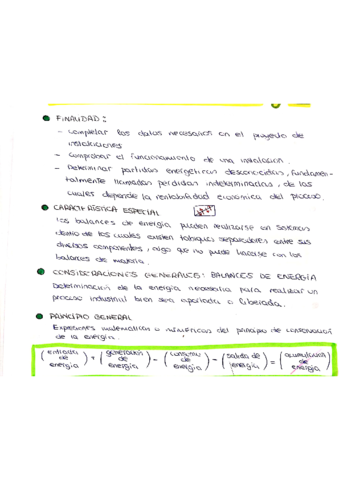 FINALIDAD:
- completar los datos necesarios en el proyecto de
instalaciones
- comprobar el funcionamiento de una instalación.
- Determinar partidas energéticas desconocidas, fundamen-
talmente llamadas pérdidas indeterminadas, de las
cuales depende la rentabilidad económica del proceso.
CARACTERÍSTICA ESPECIAL
los balances de energía pueden realizarse en sistemas
dentro de los cuales existen tabiques separadores entre sus
diversos componentes, algo que no puede hacerse con los
balances de materia.
CONSIDERACIONES GENERALES: BALANCES DE ENERGÍA
Determinación de la energía necesaria para realizar un
proceso industrial bien sea aportada o liberada.
PRINCIPIO GENERAL
Expresiones matemáticas o numéricas del principio de conservación
de la energía.
(entrada de energía) + (generación de energía) - (consumo de energía) - (salida de energía) = (acumulación de energía)